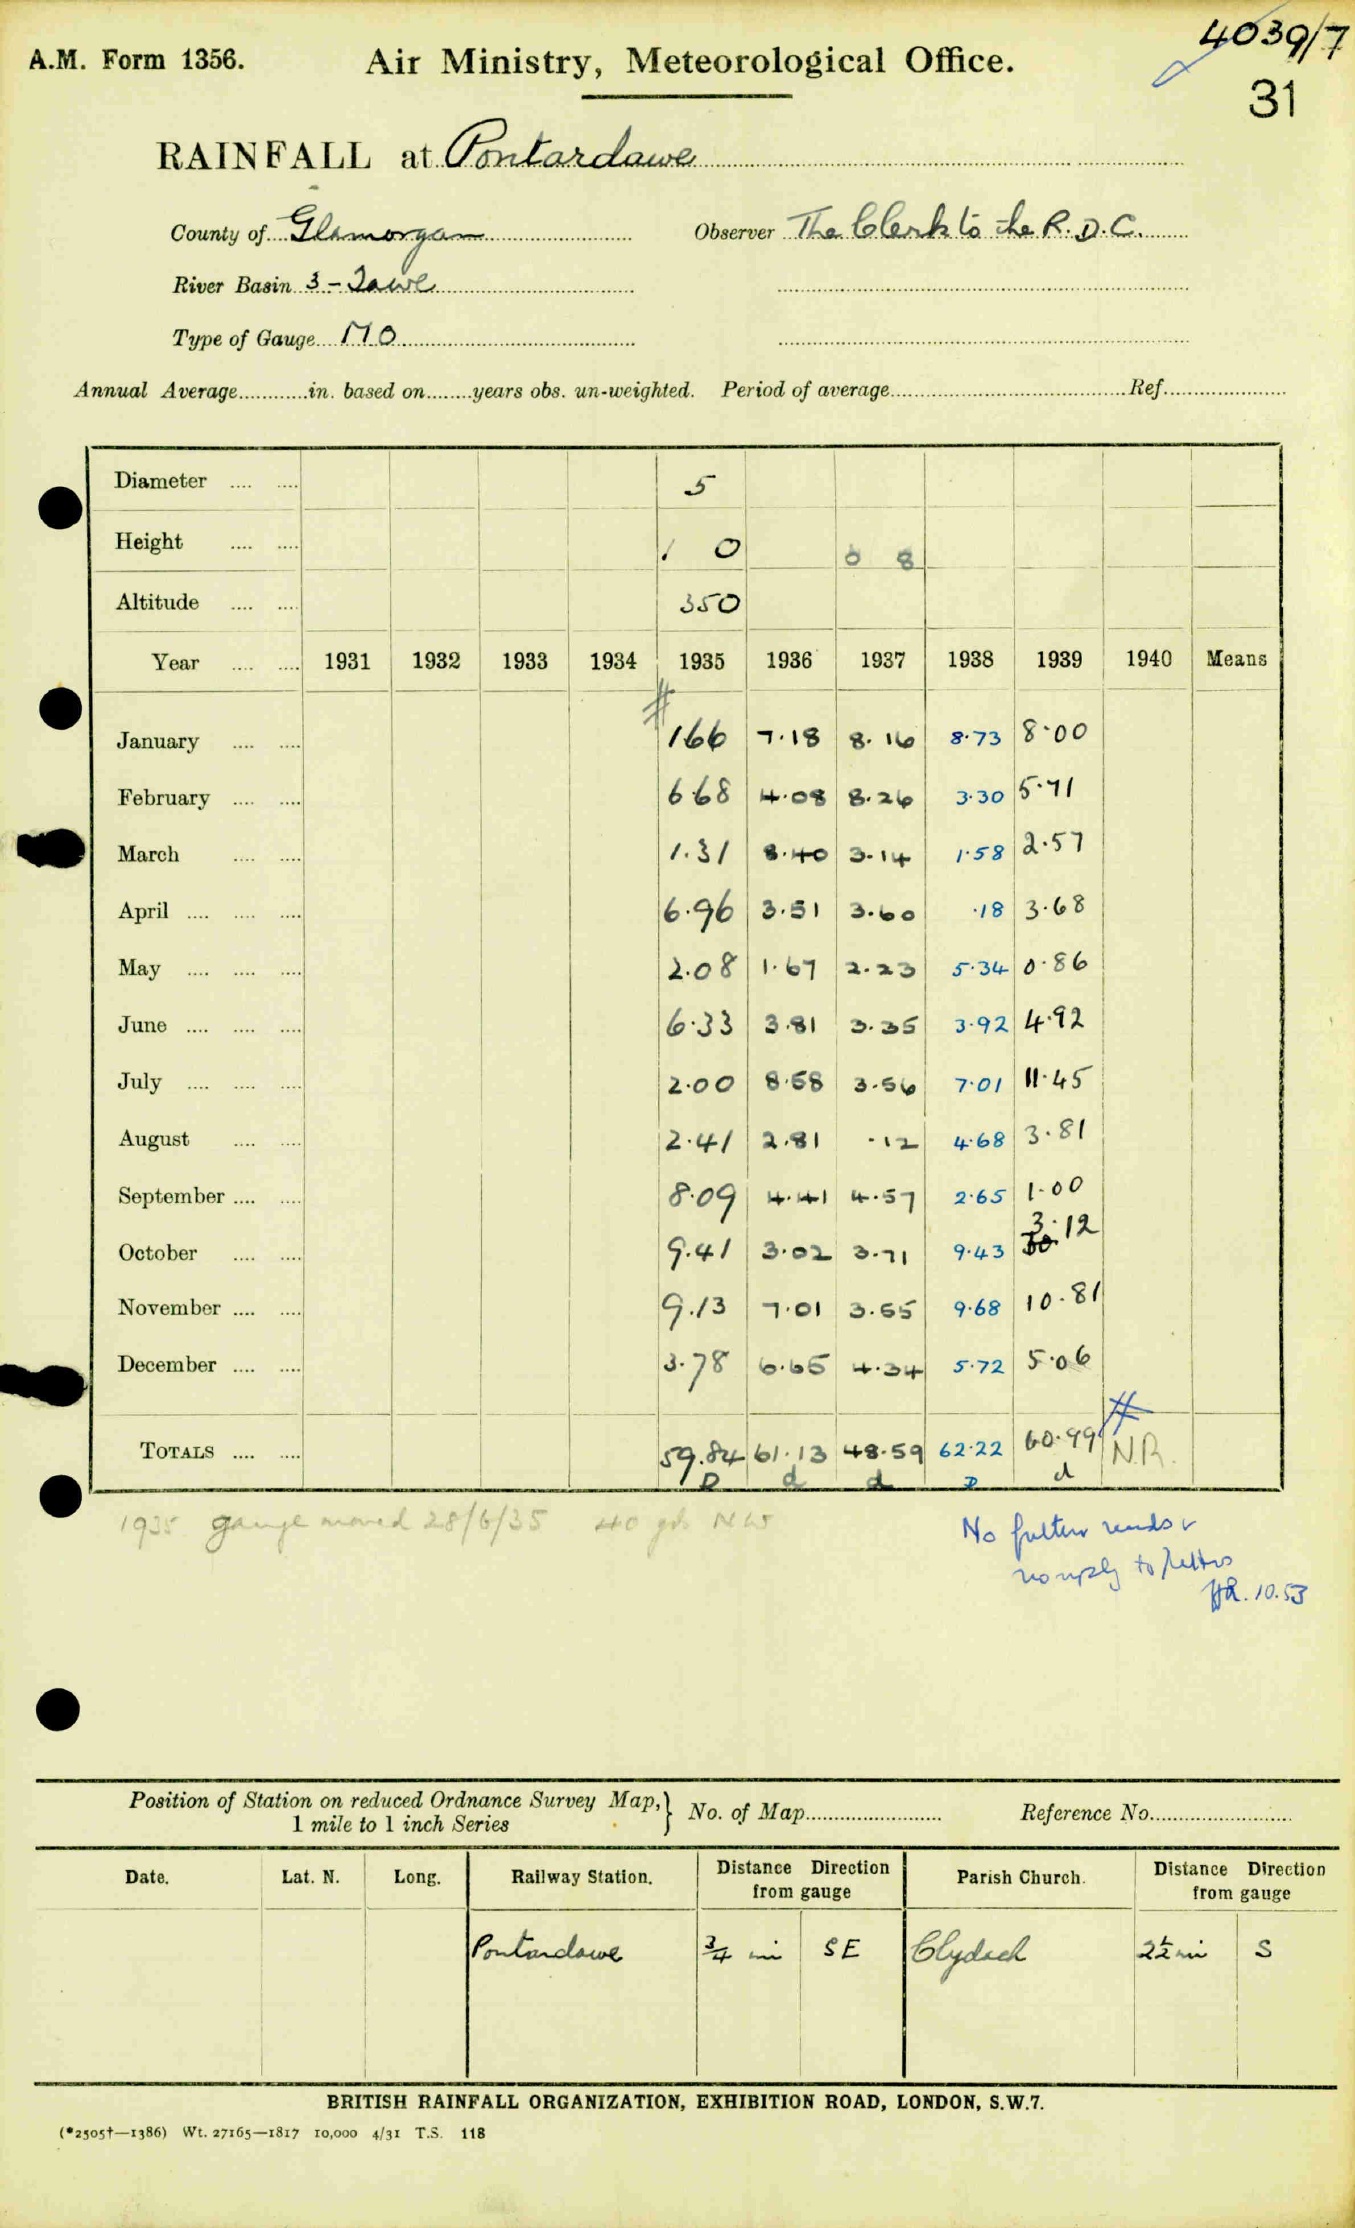 4039/7
A.M. Form 1356. Air Ministry, Meteorological Office.
31
RAINFALL at Pontardawe
County of Glamorgan Observer The Clerk to the R.D.C.
River Basin 3 - Tawe
Type of Gauge MO
Annual Average............in. based on........years obs. un-weighted. Period of average............ Ref............
Diameter .... .... 5
Height .... .... 1 0 0 8
Altitude .... .... 350
Year .... .... 1931 1932 1933 1934 1935 1936 1937 1938 1939 1940 Means
#
January .... .... 1.66 7.18 8.16 8.73 8.00
February .... .... 6.68 4.08 8.26 3.30 5.71
March .... .... 1.31 8.40 3.14 1.58 2.57
April .... .... .... 6.96 3.51 3.60 .18 3.68
May .... .... .... 2.08 1.67 2.23 5.34 0.86
June .... .... .... 6.33 3.81 3.35 3.92 4.92
July .... .... .... 2.00 8.58 3.56 7.01 11.45
August .... .... 2.41 2.81 .12 4.68 3.81
September .... .... 8.09 4.41 4.57 2.65 1.00
October .... .... 9.41 3.02 3.71 9.43 3.12
November .... .... 9.13 7.01 3.55 9.68 10.81
December .... .... 3.78 6.65 4.34 5.72 5.06
#
TOTALS .... .... 59.84 61.13 48.59 62.22 60.99 N.R.
D d d D d
1935 gauge moved 28/6/35 40 yds NW
No further rends &
no reply to letters
10.53
Position of Station on reduced Ordnance Survey Map,} No. of Map............ Reference No............
1 mile to 1 inch Series
Date. Lat. N. Long. Railway Station. Distance Direction from gauge Parish Church. Distance Direction from gauge
Pontardawe 3/4 mi SE Clydach 2 1/2 mi S
BRITISH RAINFALL ORGANIZATION, EXHIBITION ROAD, LONDON, S.W.7.
(*2505†—1386) Wt. 27165—1817 10,000 4/31 T.S. 118